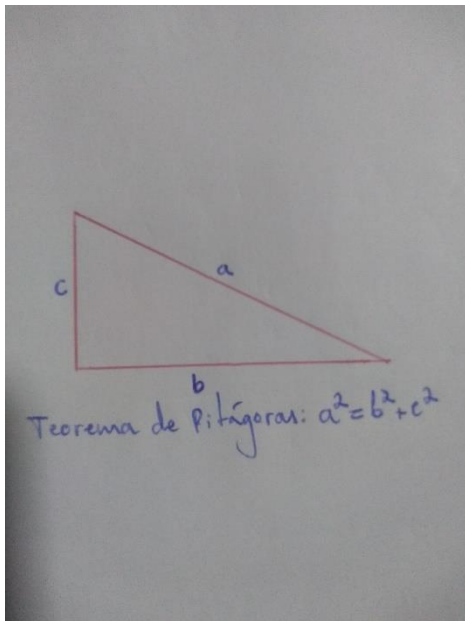 a
c
b
Teorema de Pitágoras: a²=b²+c²